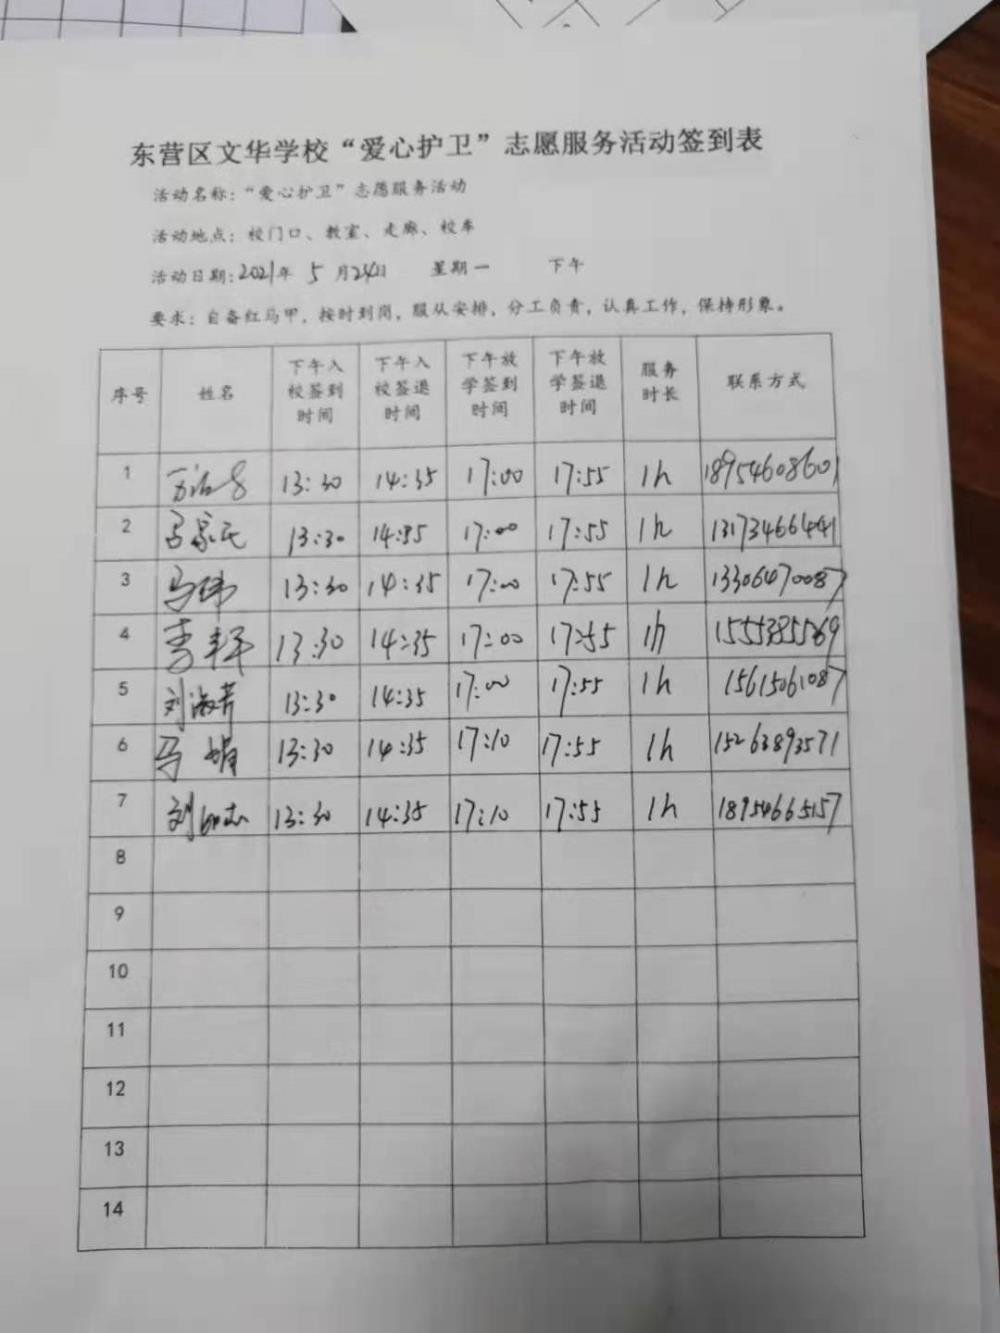 东营区文华学校“爱心护卫”志愿服务活动签到表
活动名称：“爱心护卫”志愿服务活动
活动地点：校门口、教室、走廊、校车
活动日期：2021年 5 月24日 星期一 下午
要求：自备红马甲，按时到岗，服从安排，分工负责，认真工作，保持形象。
序号 姓名 下午入校签到时间 下午入校签退时间 下午放学签到时间 下午放学签退时间 服务时长 联系方式
1 13:30 14:35 17:00 17:55 1h 18954608601
2 13:30 14:35 17:00 17:55 1h
3 马伟 13:30 14:35 17:00 17:55 1h 13306470087
4 13:30 14:35 17:00 17:55 1h
5 刘海芹 13:30 14:35 17:00 17:55 1h 15615061087
6 马娟 13:30 14:35 17:10 17:55 1h 15263893571
7 13:30 14:35 17:10 17:55 1h 18954665157
8
9
10
11
12
13
14